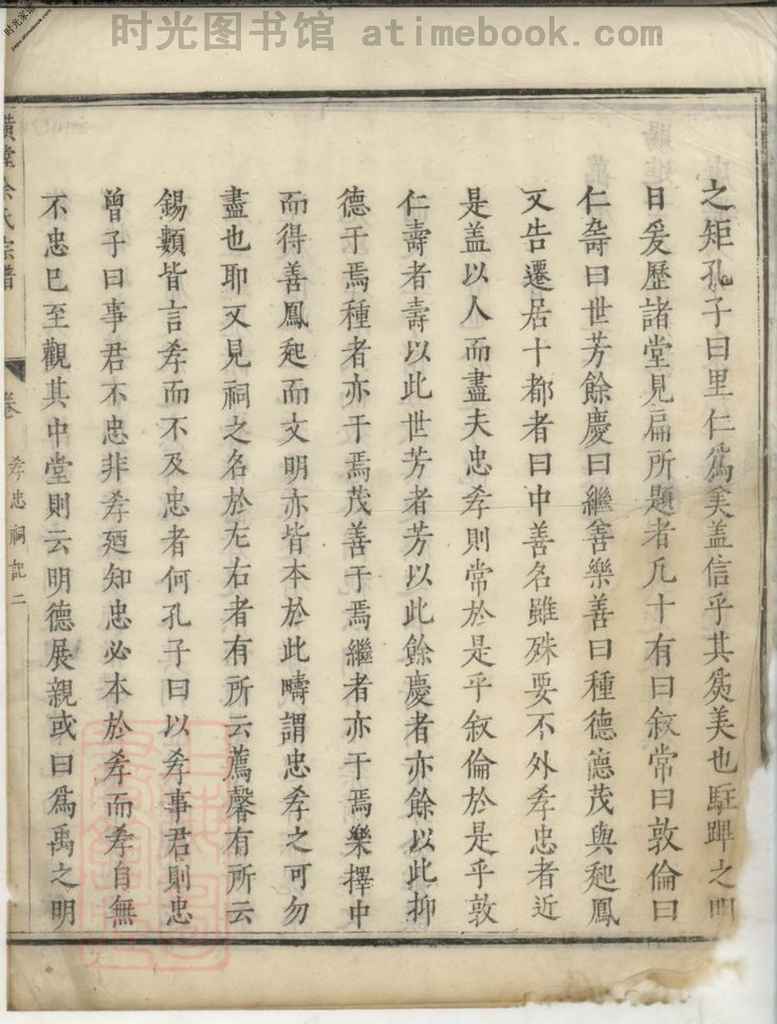 时光图书馆 atimebook.com
之矩孔子曰里仁爲美蓋信乎其爲美也駐蹕之
日爰歷諸堂見扁所題者凡十有曰叙常曰敦倫曰
仁壽曰世芳餘慶曰繼善樂善曰種德德茂與起鳳
又告遷居十都者曰中善名雖殊要不外孝忠者近
是盖以人而盡夫忠孝則常於是乎叙倫於是乎敦
仁壽者壽以此世芳者芳以此餘慶者亦餘以此抑
德于焉種者亦于焉茂善于焉繼者亦于焉樂擇中
而得善鳳起而文明亦皆本於此疇謂忠孝之可勿
盡也耶又見祠之名於左右者有所云薦馨有所云
錫類皆言孝而不及忠者何孔子曰以孝事君則忠
曾子曰事君不忠非孝廼知忠必本於孝而孝自無
不忠已至觀其中堂則云明德展親或曰爲禹之明
余氏宗譜 卷 孝忠祠記 二